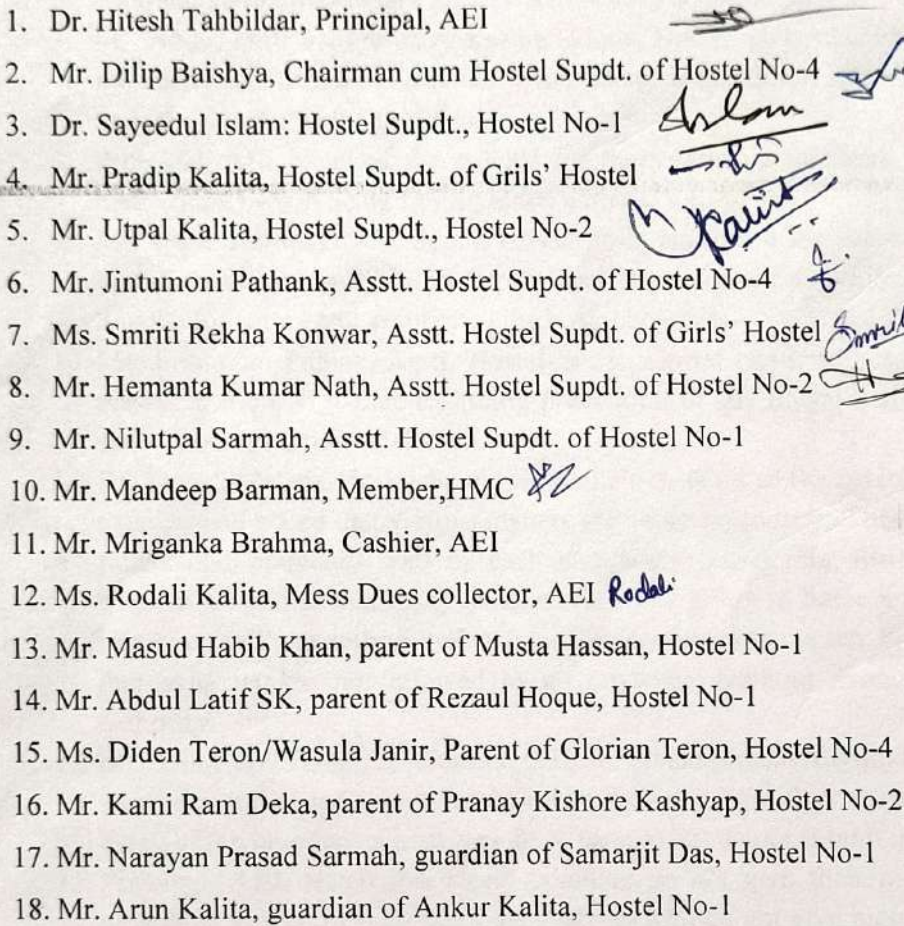 1. Dr. Hitesh Tahbildar, Principal, AEI
2. Mr. Dilip Baishya, Chairman cum Hostel Supdt. of Hostel No-4
3. Dr. Sayeedul Islam: Hostel Supdt., Hostel No-1 Islam
4. Mr. Pradip Kalita, Hostel Supdt. of Grils' Hostel
5. Mr. Utpal Kalita, Hostel Supdt., Hostel No-2
6. Mr. Jintumoni Pathank, Asstt. Hostel Supdt. of Hostel No-4
7. Ms. Smriti Rekha Konwar, Asstt. Hostel Supdt. of Girls' Hostel
8. Mr. Hemanta Kumar Nath, Asstt. Hostel Supdt. of Hostel No-2
9. Mr. Nilutpal Sarmah, Asstt. Hostel Supdt. of Hostel No-1
10. Mr. Mandeep Barman, Member,HMC
11. Mr. Mriganka Brahma, Cashier, AEI
12. Ms. Rodali Kalita, Mess Dues collector, AEI Rodali
13. Mr. Masud Habib Khan, parent of Musta Hassan, Hostel No-1
14. Mr. Abdul Latif SK, parent of Rezaul Hoque, Hostel No-1
15. Ms. Diden Teron/Wasula Janir, Parent of Glorian Teron, Hostel No-4
16. Mr. Kami Ram Deka, parent of Pranay Kishore Kashyap, Hostel No-2
17. Mr. Narayan Prasad Sarmah, guardian of Samarjit Das, Hostel No-1
18. Mr. Arun Kalita, guardian of Ankur Kalita, Hostel No-1